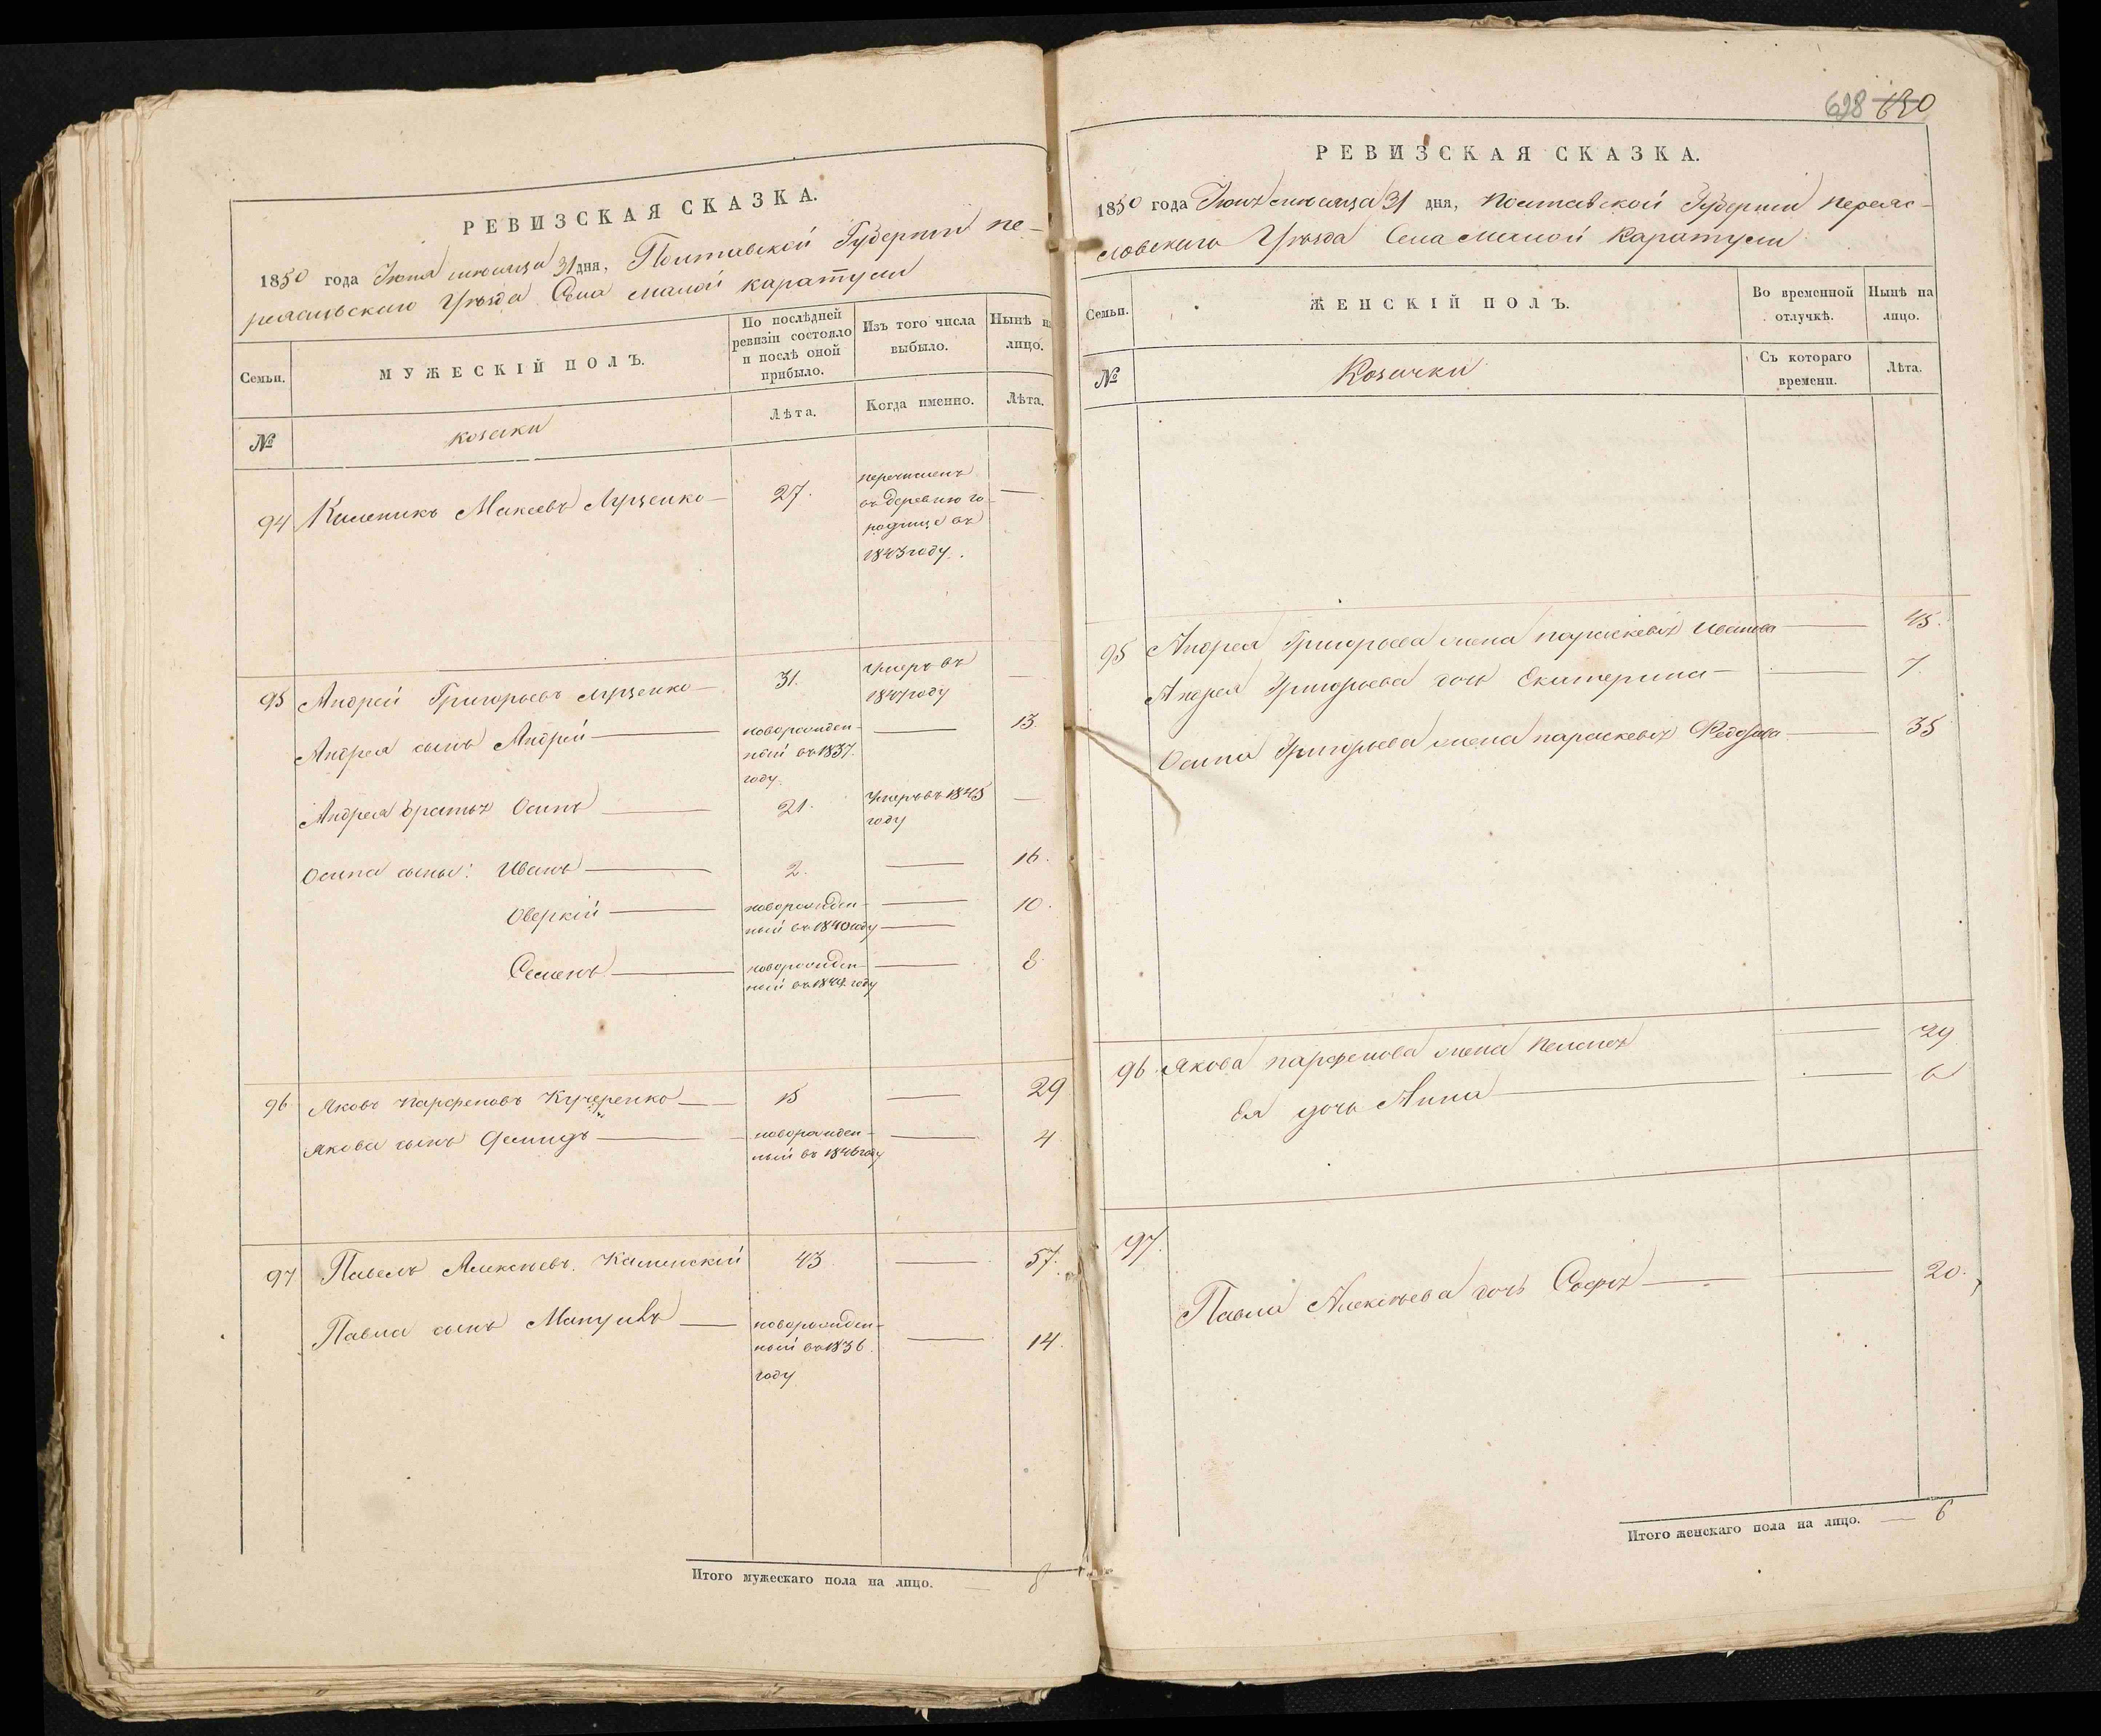 РЕВИЗСКАЯ СКАЗКА.
1850 года Июля месяца 31 дня, Полтавской Губернии Пе-
реяславскаго Уѣзда Села малой каратули
Семьи.
МУЖЕСКІЙ ПОЛЪ.
По послѣдней ревизіи состояло и послѣ оной прибыло.
Изъ того числа выбыло.
Нынѣ на лицо.
№
козаки
Лѣта.
Когда именно.
Лѣта.
94 Каленикъ Макеевъ Луценко 27. перечисленъ
въ деревню го-
родище въ
1843 году.
95 Андрей Григорьевъ Луценко 31. Умеръ въ
году
Андрея сынъ Андрей новорожден- 13
ный въ 1837.
году.
Андрея братъ Осипъ 21. Умеръ въ 1845
году
Осипа сыны: Иванъ 2. 16.
Оверкій новорожден- 10.
ный въ 1840 году
Семенъ новорожден- 8
ный въ году
96 Яковъ Парфеновъ Кучеренко 15 29
Якова сынъ Демидъ новорожден- 4
ный въ 1846 году
97 Павелъ Алексѣевъ Каминскій 43 57.
Павла сынъ новорожден-
ный въ 1836. 14.
году
Итого мужескаго пола на лицо. 8
698 680
РЕВИЗСКАЯ СКАЗКА.
1850 года месяца 31 дня, Полтавской Губерніи Переяс-
ловскаго Уѣзда Села малой Каратули
Семьи.
ЖЕНСКІЙ ПОЛЪ.
Во временной отлучкѣ.
Нынѣ на лицо.
№
Козачки
Съ котораго времени.
Лѣта.
95 Андрея Григорьева жена параскевія Иванова 45.
Андрея Григорьева дочь Екатерина 7.
Осипа Григорьева жена параскевія Федорова 35
96 Якова парфенова жена 29
Ея дочь Анна 6
97.
Павла Алексѣева дочь Софія 20.
Итого женскаго пола на лицо. 6